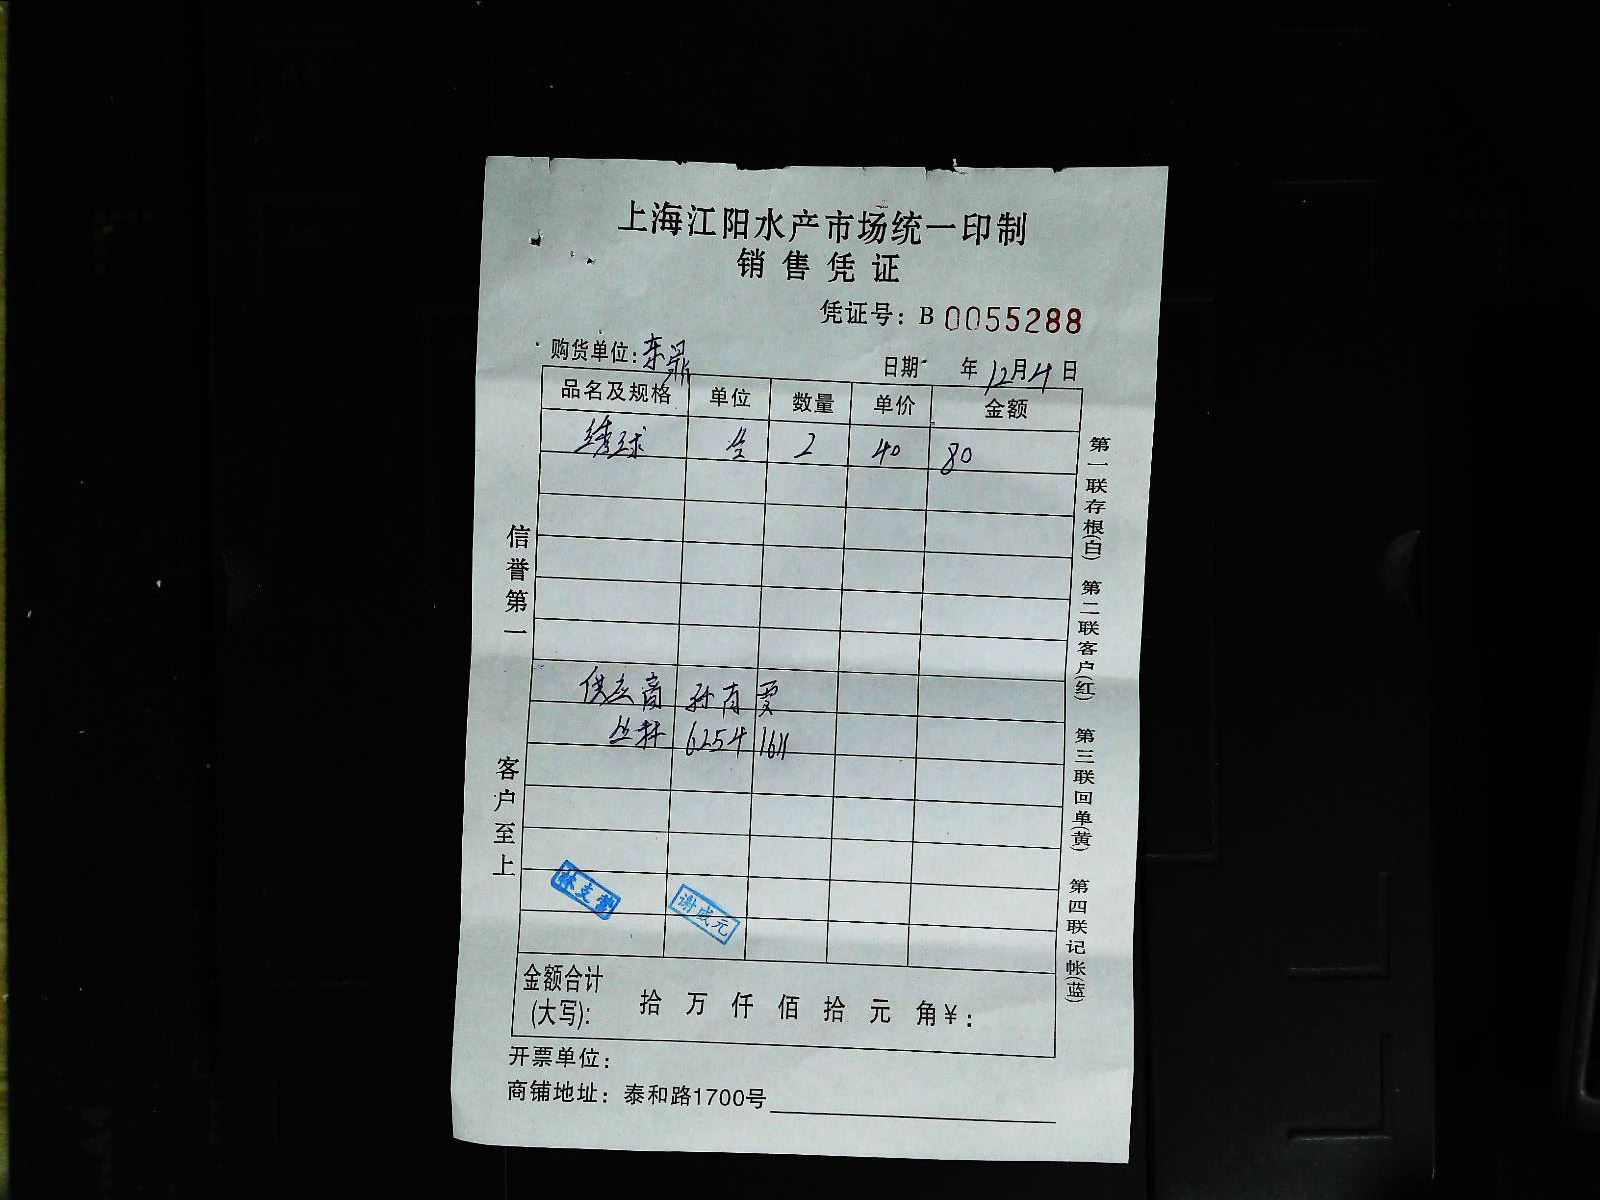 上海江阳水产市场统一印制
销售凭证
凭证号：B 0055288
购货单位：东鼎
日期 年12月4日
品名及规格 单位 数量 单价 金额
绣球 2 40 80
供应商 孙有贾
丛林 6254 1611
林支營
谢成元
金额合计
(大写)：
拾 万 仟 佰 拾 元 角¥：
开票单位：
商铺地址：泰和路1700号
信誉第一
客户至上
第一联存根(白) 第二联客户(红) 第三联回单(黄) 第四联记帐(蓝)